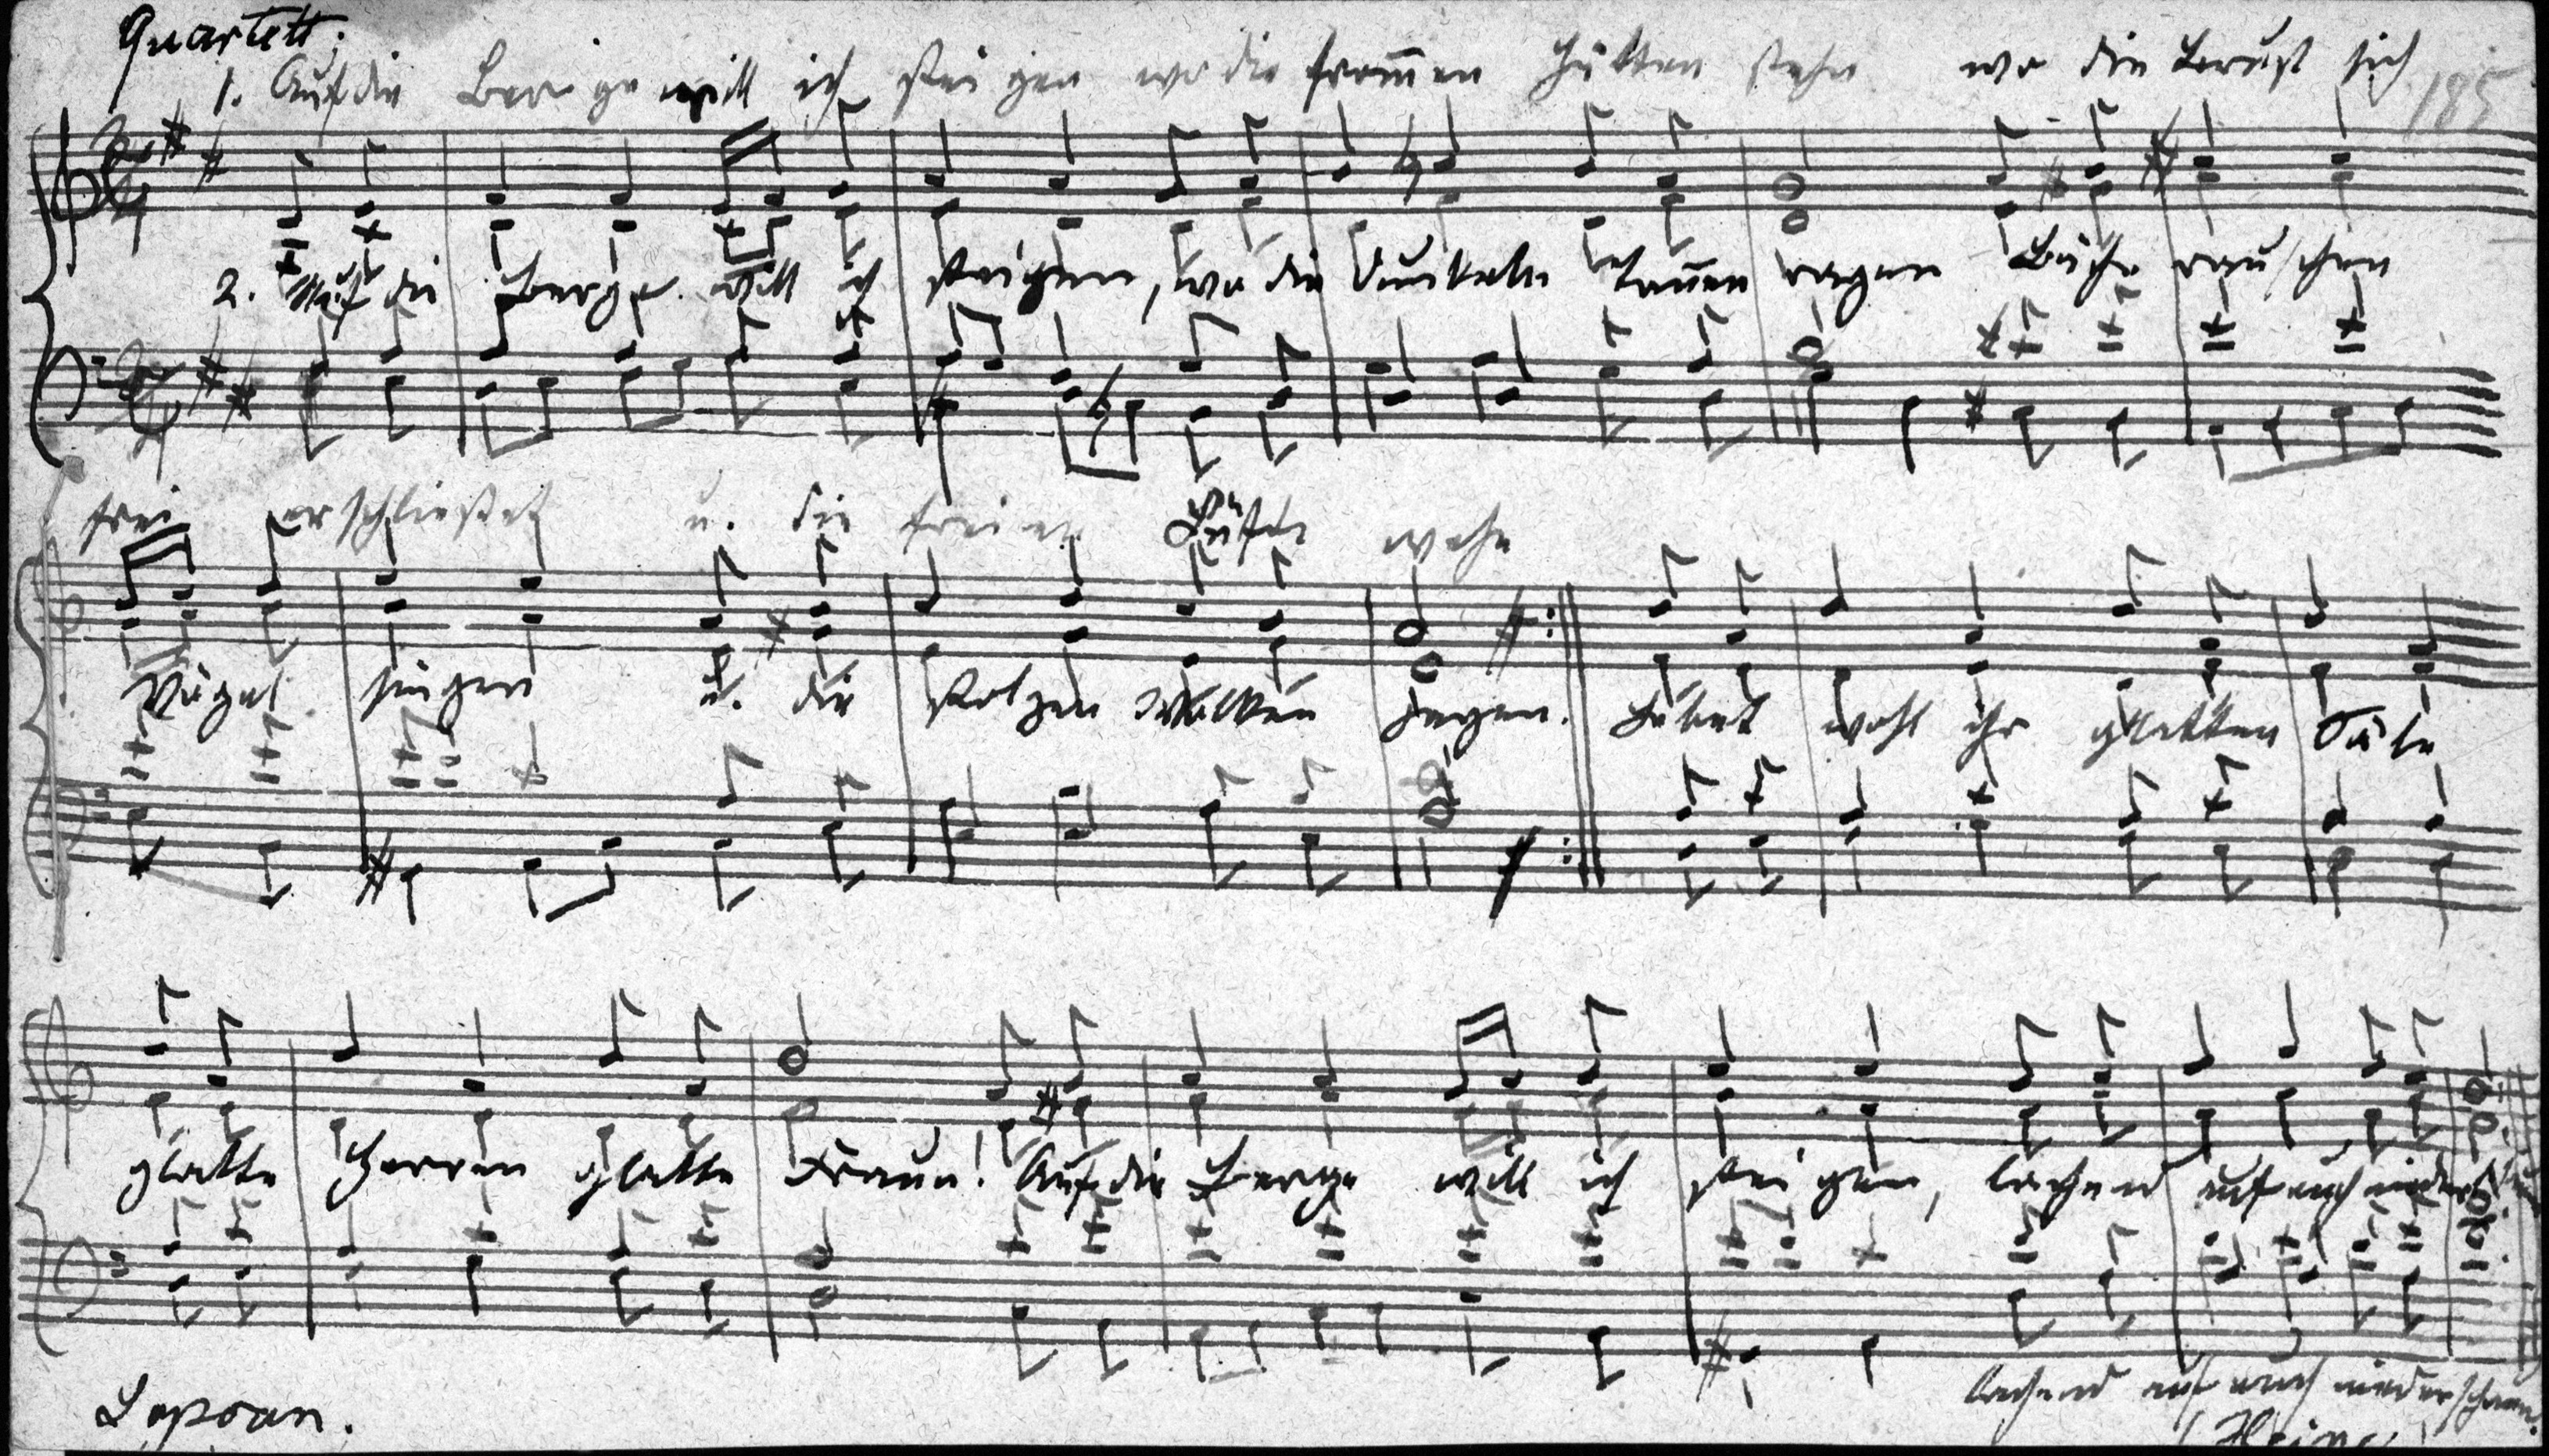 Quartett.
1. Auf die Berge will ich steigen wo die frommen Hütten stehn wo die Brust sich
185
2. Auf die Berge will ich steigen, wo die dunkeln Tannen ragen Bäche rauschen
frei erschließet u. die freien Lüfte wehn
Vögel singen u. die stolzen Wolken jagen. Lebet wohl ihr glatten Säle
glatte Herren glatte Fraun! Auf die Berge will ich steigen, lachend auf euch niederschaun
lachend auf euch niederschaun.
Lopoan.
(Heine)